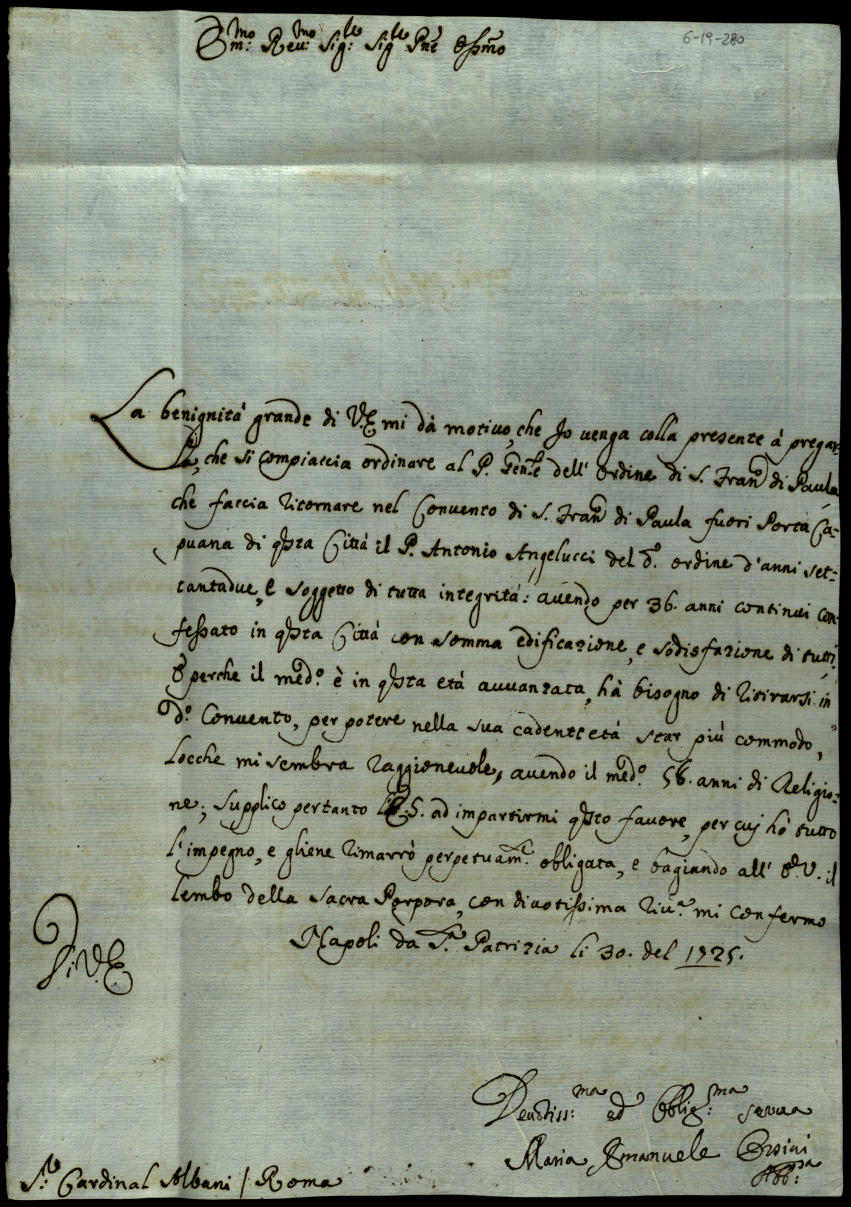 Em:mo Reu:mo Sig:re Sig:re Pne Osmo
6-19-280
La benignità grande di V.E mi dà motiuo, che Jo uenga colla presente à pregar-
la, che si compiaccia ordinare al P. Gen.le dell' ordine di S. Fran.co di Paula
che faccia ritornare nel Conuento di S. Fran.co di Paula fuori Porta Ca-
puana di q̃sta Città il P. Antonio Angelucci del d.o ordine d'anni set-
tantadue, e soggetto di tutta integrità: auendo per 36. anni continui con-
fessato in q̃sta Città con somma edificazione, e sodisfazione di tutti.
E perche il med.o è in q̃sta età auuanzata, hà bisogno di ritirarsi in
d.o Conuento, per potere nella sua cadente età star più commodo,
locche mi sembra raggioneuole, auendo il med.o 56. anni di Religio-
ne; supplico pertanto ad impartirmi q̃sto fauore, per cuj hò tutto
l'impegno, e gliene rimarrò perpetuam.te obligata, e bagiando all' E.V. il
lembo della Sacra Porpora, con diuotissima riu.a mi confermo
Napoli da S.a Patrizia li 30. del 1725.
Di V.E
Deuotiss:ma ed Oblig:ma serua
Maria Emanuele Orsini
Abb:ssa
S.r Cardinal Albani / Roma